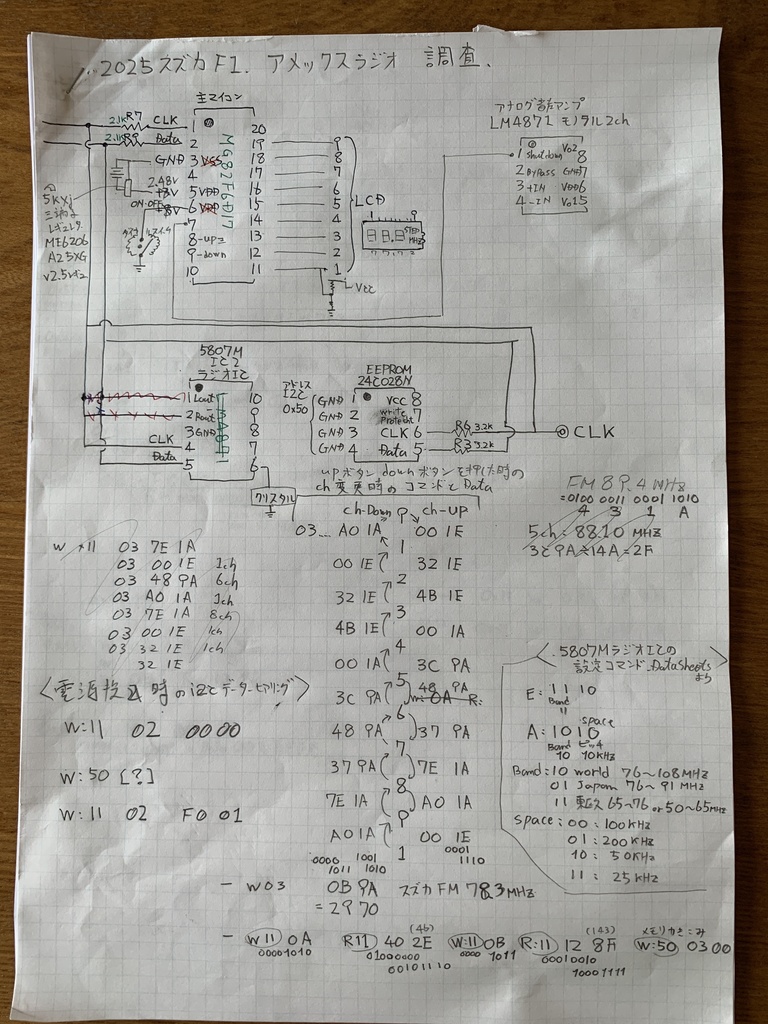 2025 スズカF1. アメックスラジオ 調査.
主マイコン
アナログ音声アンプ
LM4871 モノラル2ch
2.1K R7 CLK 1 20
2.1K R9 Data 2 19 9
GND 3 VSS 18 8
4 17 7
2.48V
+3V 5 VDD 16 6
ON-OFF
+3V 6 VDD 15 5
7 14 4
8-up 13 3
9-down 12 2
10 11 1
MG82F6D17
LCD
888 STEREO MHz
Vcc
5KXj
三端子
レギュレタ
ME6206
A25XG
V2.5レギュ
1 shutdown Vo2 8
2 BYPASS GND 7
3 +IN VDD 6
4 -IN Vo1 5
5807M
I2C
ラジオIC
1 Lout 10
2 Rout 9
3 GND 8
CLK 4 7
Data 5 6
クリスタル
EEPROM
24C028N
アドレス
I2C
0x50
GND 1 VCC 8
GND 2 write Protect 7
GND 3 CLK 6 R6 3.2K
GND 4 Data 5 R3 3.2K
CLK
upボタン downボタンを押した時の
ch変更時のコマンドとData
ch-Down P ch-UP
03... A0 1A 00 1E
1
00 1E 32 1E
2
32 1E 4B 1E
3
4B 1E 00 1A
4
00 1A 3C 9A
5
3C 9A 48 9A
6
48 9A 37 9A
7
37 9A 7E 1A
8
7E 1A A0 1A
P
A0 1A 1 00 1E
0000 1001 0001
1011 1010 1110
FM 89.4 MHz
=0100 0011 0001 1010
4 3 1 A
5ch=88.10 MHz
3C 9A 14A=2F
W 11 03 7E 1A
03 00 1E 1ch
03 48 9A 6ch
03 A0 1A
03 7E 1A 8ch
03 00 1E 1ch
03 32 1E 1ch
32 1E
〈電源投入時のi2cデーターヒアリング〉
W:11 02 0000
W:50 [?]
W:11 02 F0 01
〈.5807MラジオICの
設定コマンド.DataSheets
より〉
E: 11 10
Band
11
A: 1010
space
Band ピッチ
10 10KHz
Band: 10 world 76~108MHz
01 Japam 76~91 MHz
11 東欧 65~76 or 50~65MHz
space: 00: 100KHz
01: 200KHz
10: 50KHz
11: 25KHz
- W03 0B 9A スズカFM 78.3MHz
= 2970
- W11 0A R11 40 2E (46) W:11 0B R:11 12 8F (143) メモリかきこみ W:50 03 00
00001010 01000000 0000 1011 00010010
00101110 10001111